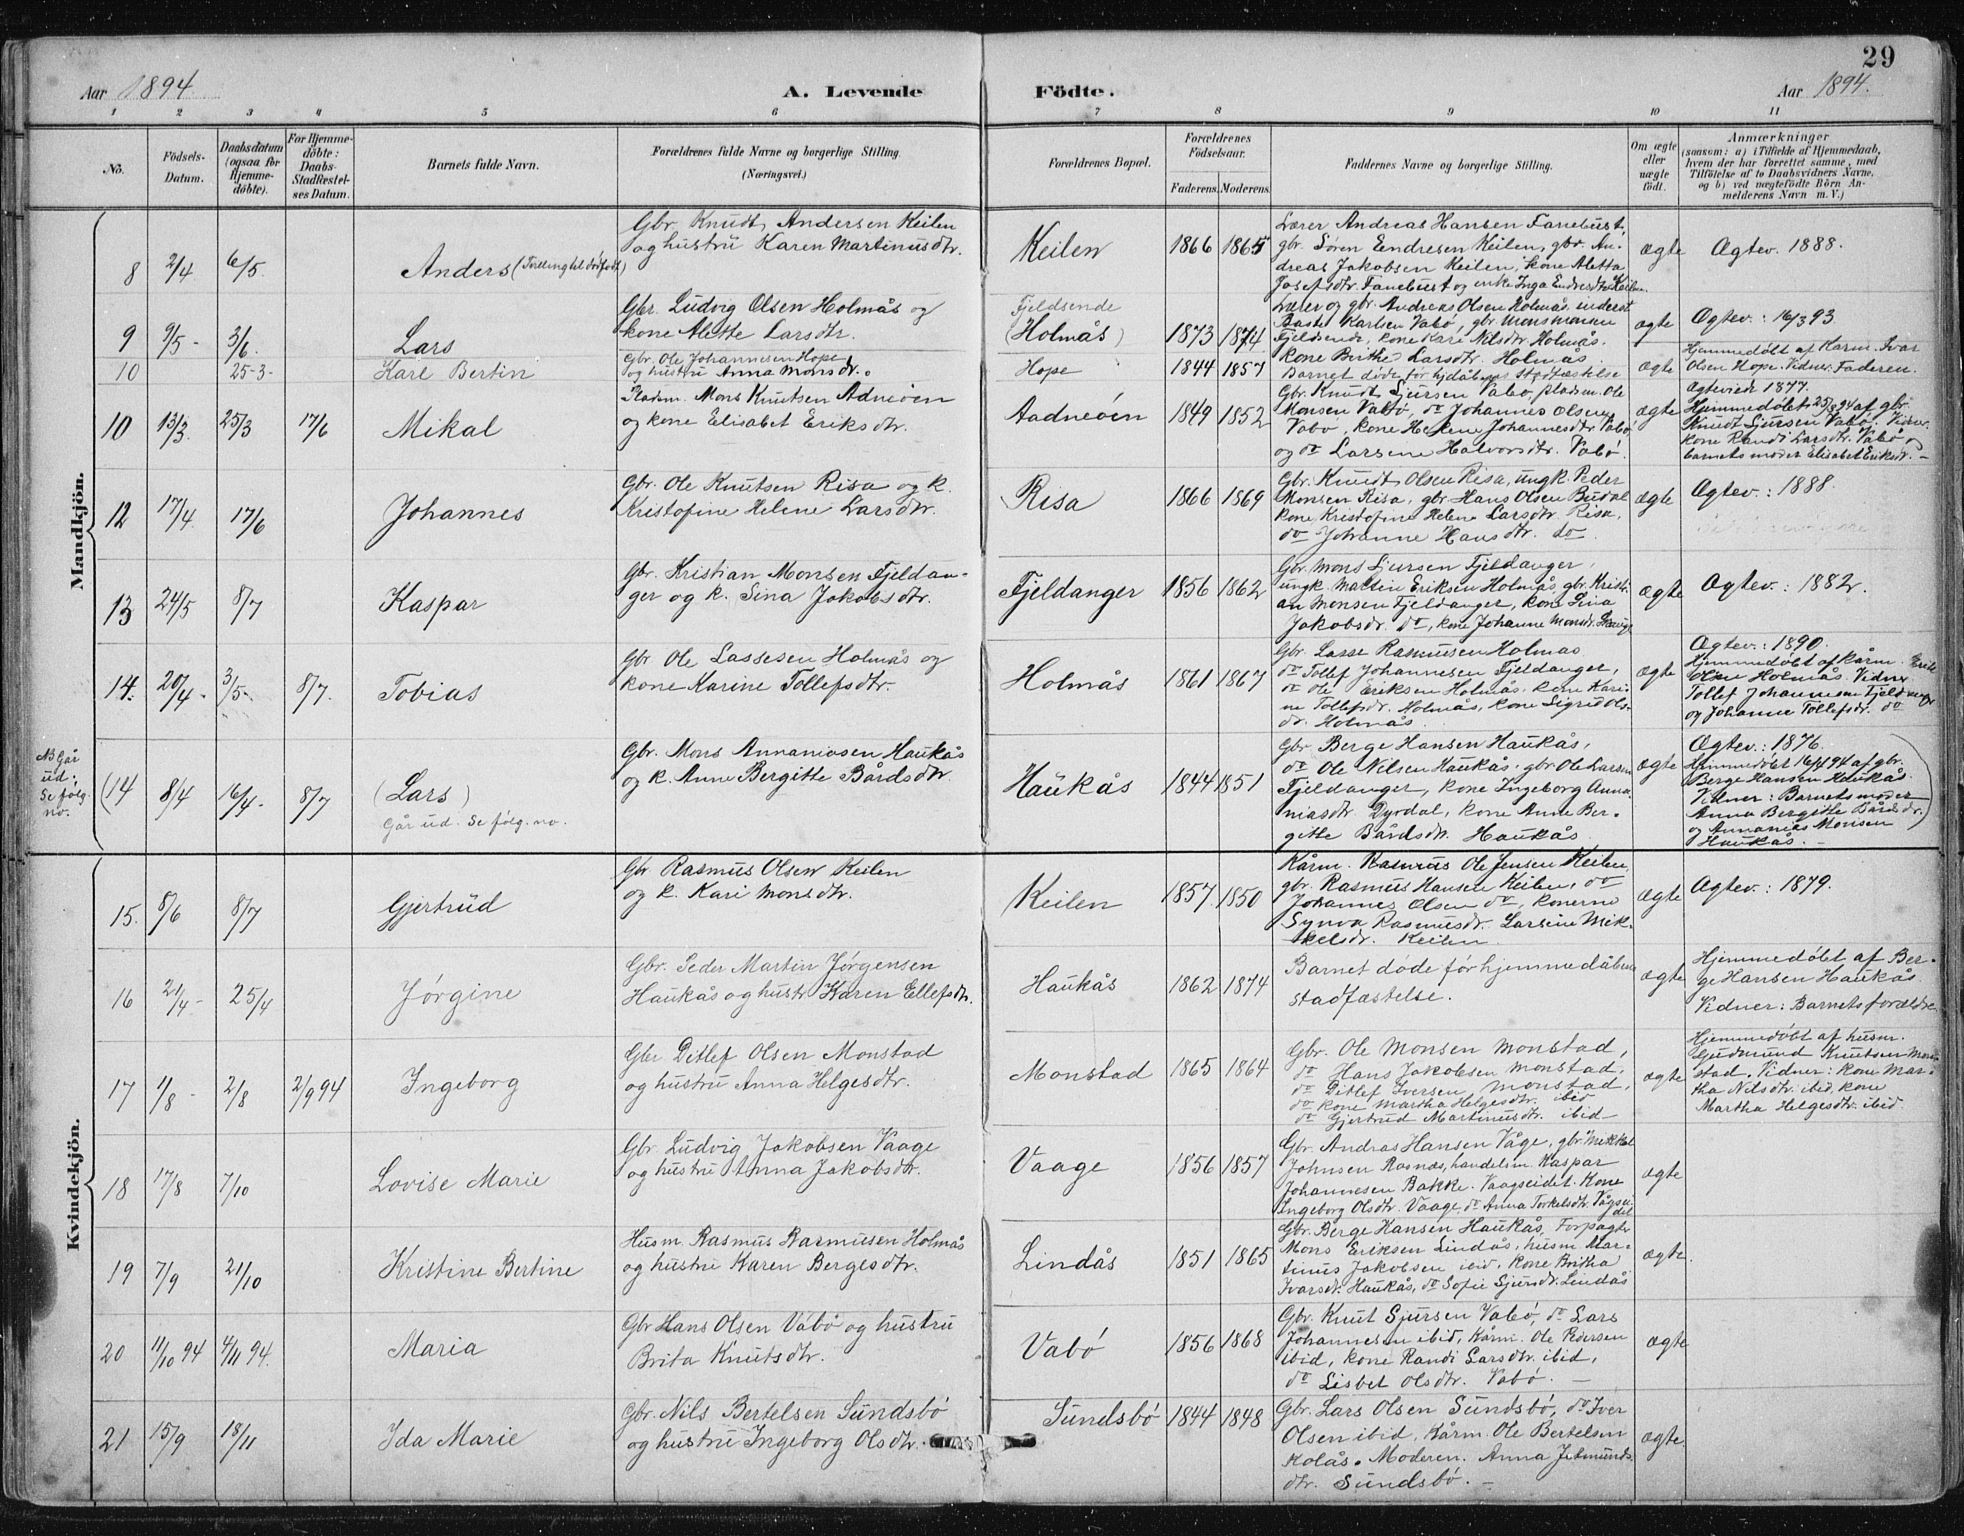 29
Aar 1894.
A. Levende
Födte.
Aar 1894.
1 2 3 4 5 6 7 8 9 10 11
No.
Födsels-
Datum.
Daabsdatum
(ogsaa for
Hjemme-
döbte).
For Hjemme-
döbte:
Daabs-
Stadfæstel-
ses Datum.
Barnets fulde Navn.
Forældrenes fulde Navne og borgerlige Stilling.
(Næringsvei.)
Forældrenes Bopæl.
Forældrenes
Födselsaar.
Faderens. Moderens.
Faddernes Navne og borgerlige Stilling.
Om ægte
eller
uægte
födt.
Anmærkninger
(saasom: a) i Tilfælde af Hjemmedaab,
hvem der har forrettet samme, med
Tilföielse af to Daabsvidners Navne,
og b) ved uægtefödte Börn An-
melderens Navn m. V.)
Mandkjön.
8 2/4 6/5 Anders (Tvilling til dødfødt)
Gbr. Knudt Andersen Keilen
og hustru Karen Martinusdtr.
Keilen 1866 1865
Lærer Andreas Hansen Fanebust,
gbr. Sören Endresen Keilen, gbr. An-
dreas Jakobsen Keilen, kone Aletta
Josefsdtr. Fanebust og enke Inga Endresdtr. Keilen.
ægte
Ægtev. 1888.
9 9/5 - 3/6. Lars
Gbr. Ludvig Olsen Holmås og
kone Alette Larsdtr.
Fjeldsende
(Holmås) 1873 1874
Lærer og gbr. Andreas Olsen Holmås, inderst
Karlsen Vabø, gbr. Mons Monsen
Fjeldsende, kone Kari Nilsdtr. Holmås.
kone Berthe Larsdtr. Holmås.
ægte
Ægtev.: 16/3 93
10 25-3- Karl Bertin
Gbr. Ole Johannesen Hope
og hustru Anna Monsdtr.
Hope 1844 1857
Barnet døde før hjdåbens stadfæstelse
ægte
Hjemmedøbt af Karm. Ivar
Olsen Hope. Vidner: Faderen.
10 13/3. 25/3 17/6 Mikal
Pladsm. Mons Knutsen Adneöen
og kone Elisabet Eriksdtr.
Aadneöen 1849 1852
Gbr. Knudt Sjursen Vabø, pladsm. Ole
Monsen Vabø, do Johannes Olsen
Vabø, kone Helene Johannesdtr. Vabø
og do Larsene Halvorsdtr. Vabø.
ægte
Ægteviede 1877.
Hjemmedøbt 25/3 94 af gbr.
Knudt Sjursen Vabø. Vidner:
kone Randi Larsdtr. Vabø og
barnets moder Elisabet Eriksdtr. -
12 17/4 17/6 Johannes
Gbr. Ole Knutsen Risa og k.
Kristofine Helene Larsdtr.
Risa 1866 1869
Gbr. Knudt Olsen Risa, ungk. Peder
Monsen Risa, gbr. Hans Olsen Budal
kone Kristofine Helene Larsdtr. Risa,
do Johanne Hansdtr. do
ægte
Ægtev.: 1888.
13 24/5 8/7 Kaspar
Gbr. Kristian Monsen Fjeldan-
ger og k. Sina Jakobsdtr.
Fjeldanger 1856 1862
Gbr. Mons Sjursen Fjeldanger,
ungk. Martin Eriksen Holmås, gbr. Kristi-
an Monsen Fjeldanger, kone Sina
Jakobsdtr. do, kone Johanne Monsdtr.
ægte
Ægtev.: 1882.
14. 20/4 - 3/5- 8/7. Tobias
Gbr Ole Lassesen Holmås og
kone Karine Tollefsdtr.
Holmås 1861 1867
Gbr. Lasse Rasmusen Holmås
do Tollef Johannesen Fjeldanger,
do Ole Eriksen Holmås, kone Kari-
ne Tollefsdr. Holmås, kone Sigrid Ols-
dr. Holmås.
ægte
Ægtev.: 1890.
Hjemmedøbt af kårm. Erik
Olsen Holmås. Vidner
Tollef Johannesen Fjeldanger
og Johanne Tollefsdr. do
NB Går
ud:
Se følg.
no.
(14 8/4 16/4- 8/7 (Lars)
Går ud. Se følg. no.
Gbr. Mons Annaniasen Haukås
og k. Anne Bergitte Bårdsdtr.
Haukås 1844 1851
Gbr Berge Hansen Haukås,
do Ole Nilsen Haukås, gbr Ole Larsen
Fjeldanger, kone Ingeborg Anna-
niasdtr. Dyrdal, kone Anne Ber-
gitte Bårdsdtr. Haukås
ægte
Ægtev.: 1876.
Hjemmedøbt 16/4 94 af gbr.
Berge Hansen Haukås.
Vidner: Barnets moder
Anna Bergitte Bårdsdr.
og Annanias Monsen
Haukås. -
Kvindekjön.
15. 8/6 8/7 Gjertrud
Gbr Rasmus Olsen Keilen
og k. Kari Monsdtr.
Keilen 1857. 1850
Kårm. Rasmus Ole Jensen Keilen,
gbr. Rasmus Hansen Keilen, do
Johannes Olsen do, konerne
Synva Rasmusdtr. Larsine Mik-
kelsdr. Keilen.
ægte
Ægtev.: 1879.
16 21/4- 25/4 Jørgine
Gbr. Peder Martin Jørgensen
Haukås og hustr Karen Ellefsdtr.
Haukås 1862 1874
Barnet døde før hjemmedåbens
stadfæstelse.
ægte
Hjemmedøbt af Ber-
ge Hansen Haukås.
Vidner: Barnets forældre
17 1/8 - 2/8 2/9 94 Ingeborg
Gbr. Ditlef Olsen Monstad
og hustru Anna Helgesdtr.
Monstad 1865 1864
Gbr. Ole Monsen Monstad,
do Hans Jakobsen Monstad,
do Ditlef Iversen Monstad,
do kone Martha Helgesdtr. ibid
do Gjertrud Martinusdtr. ibid-
ægte
Hjemmedøbt af husm.
Gudmund Knutsen Mon-
stad. Vidner: kone Mar-
tha Nilsdtr. ibid, kone
Martha Helgesdtr. ibid.
18 17/8 7/10 Lovise Marie
Gbr. Ludvig Jakobsen Vaage
og hustru Anna Jakobsdtr.
Vaage 1856 1857
Gbr. Andras Hansen Våge, gbr Mikkel
Johnsen Rasnæs, handelsm. Kaspar
Johannesen Bakke. Vaagseidet. Kone
Ingeborg Olsdtr. Vaage, do Anna Torkelsdtr. Vågsei-
det
ægte
19 7/9 21/10 Kristine Bertine
Husm. Rasmus Rasmusen Holmås
og hustru Karen Bergesdtr.
Lindås 1851 1865
Gbr. Berge Hansen Haukås, Forpagter
Mons Eriksen Lindås, husm Mar-
tinus Jakobsen ibid, kone Britha
Ivarsdtr. Haukås, do Sofie Sjursdtr. Lindås
ægte.
20 11/10 94 4/11 94. Maria
Gbr Hans Olsen Vabø og hustru
Brita Knutsdtr.
Vabø 1856 1868
Gbr. Knut Sjursen Vabø, do Lars
Johannesen ibid, Kårm. Ole Pedersen
ibid, kone Randi Larsdtr. ibid,
do Lisbet Olsdtr. Vabø. -
ægte
21 15/9 18/11 Ida Marie
Gbr. Nils Bertelsen Sundsbø
og hustru Ingeborg Olsdtr.
Sundsbø 1844 1848
Gbr. Lars Olsen Sundsbø, do Iver
Olsen ibid, Kårm. Ole Bertelsen
Kolås. Moderen. Anna Jetmunds-
dtr. Sundsbø. -
ægte.